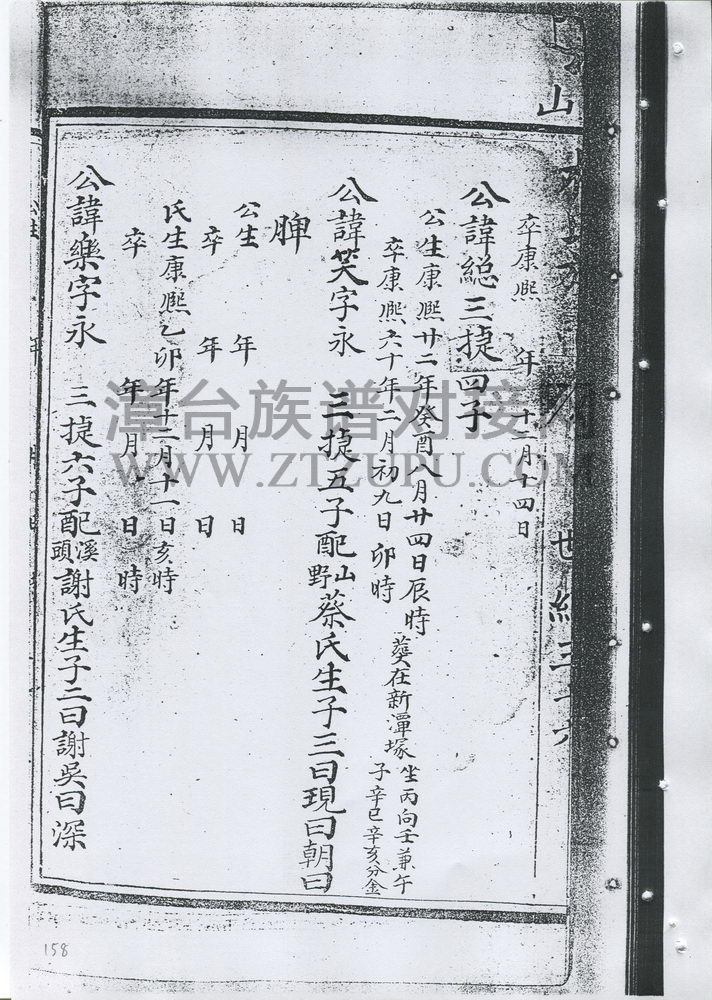 山
卒康熙 年 十二月十四日
公諱総三捷四子
公生康熙廿二年癸酉八月廿四日辰時
卒康熙六十年二月初九日卯時
葬在新潭塚坐丙向壬兼午
子辛巳辛亥分金
公諱笑字永 三捷五子配山野蔡氏生子三曰現曰朝曰
脾
公生 年 月 日
卒 年 月 日
氏生康熙乙卯年十二月十一日亥時
卒 年 月 日 時
公諱樂字永 三捷六子配溪頭謝氏生子二曰謝吳曰深
漳台族谱对接
WWW.ZTZUPU.COM
158